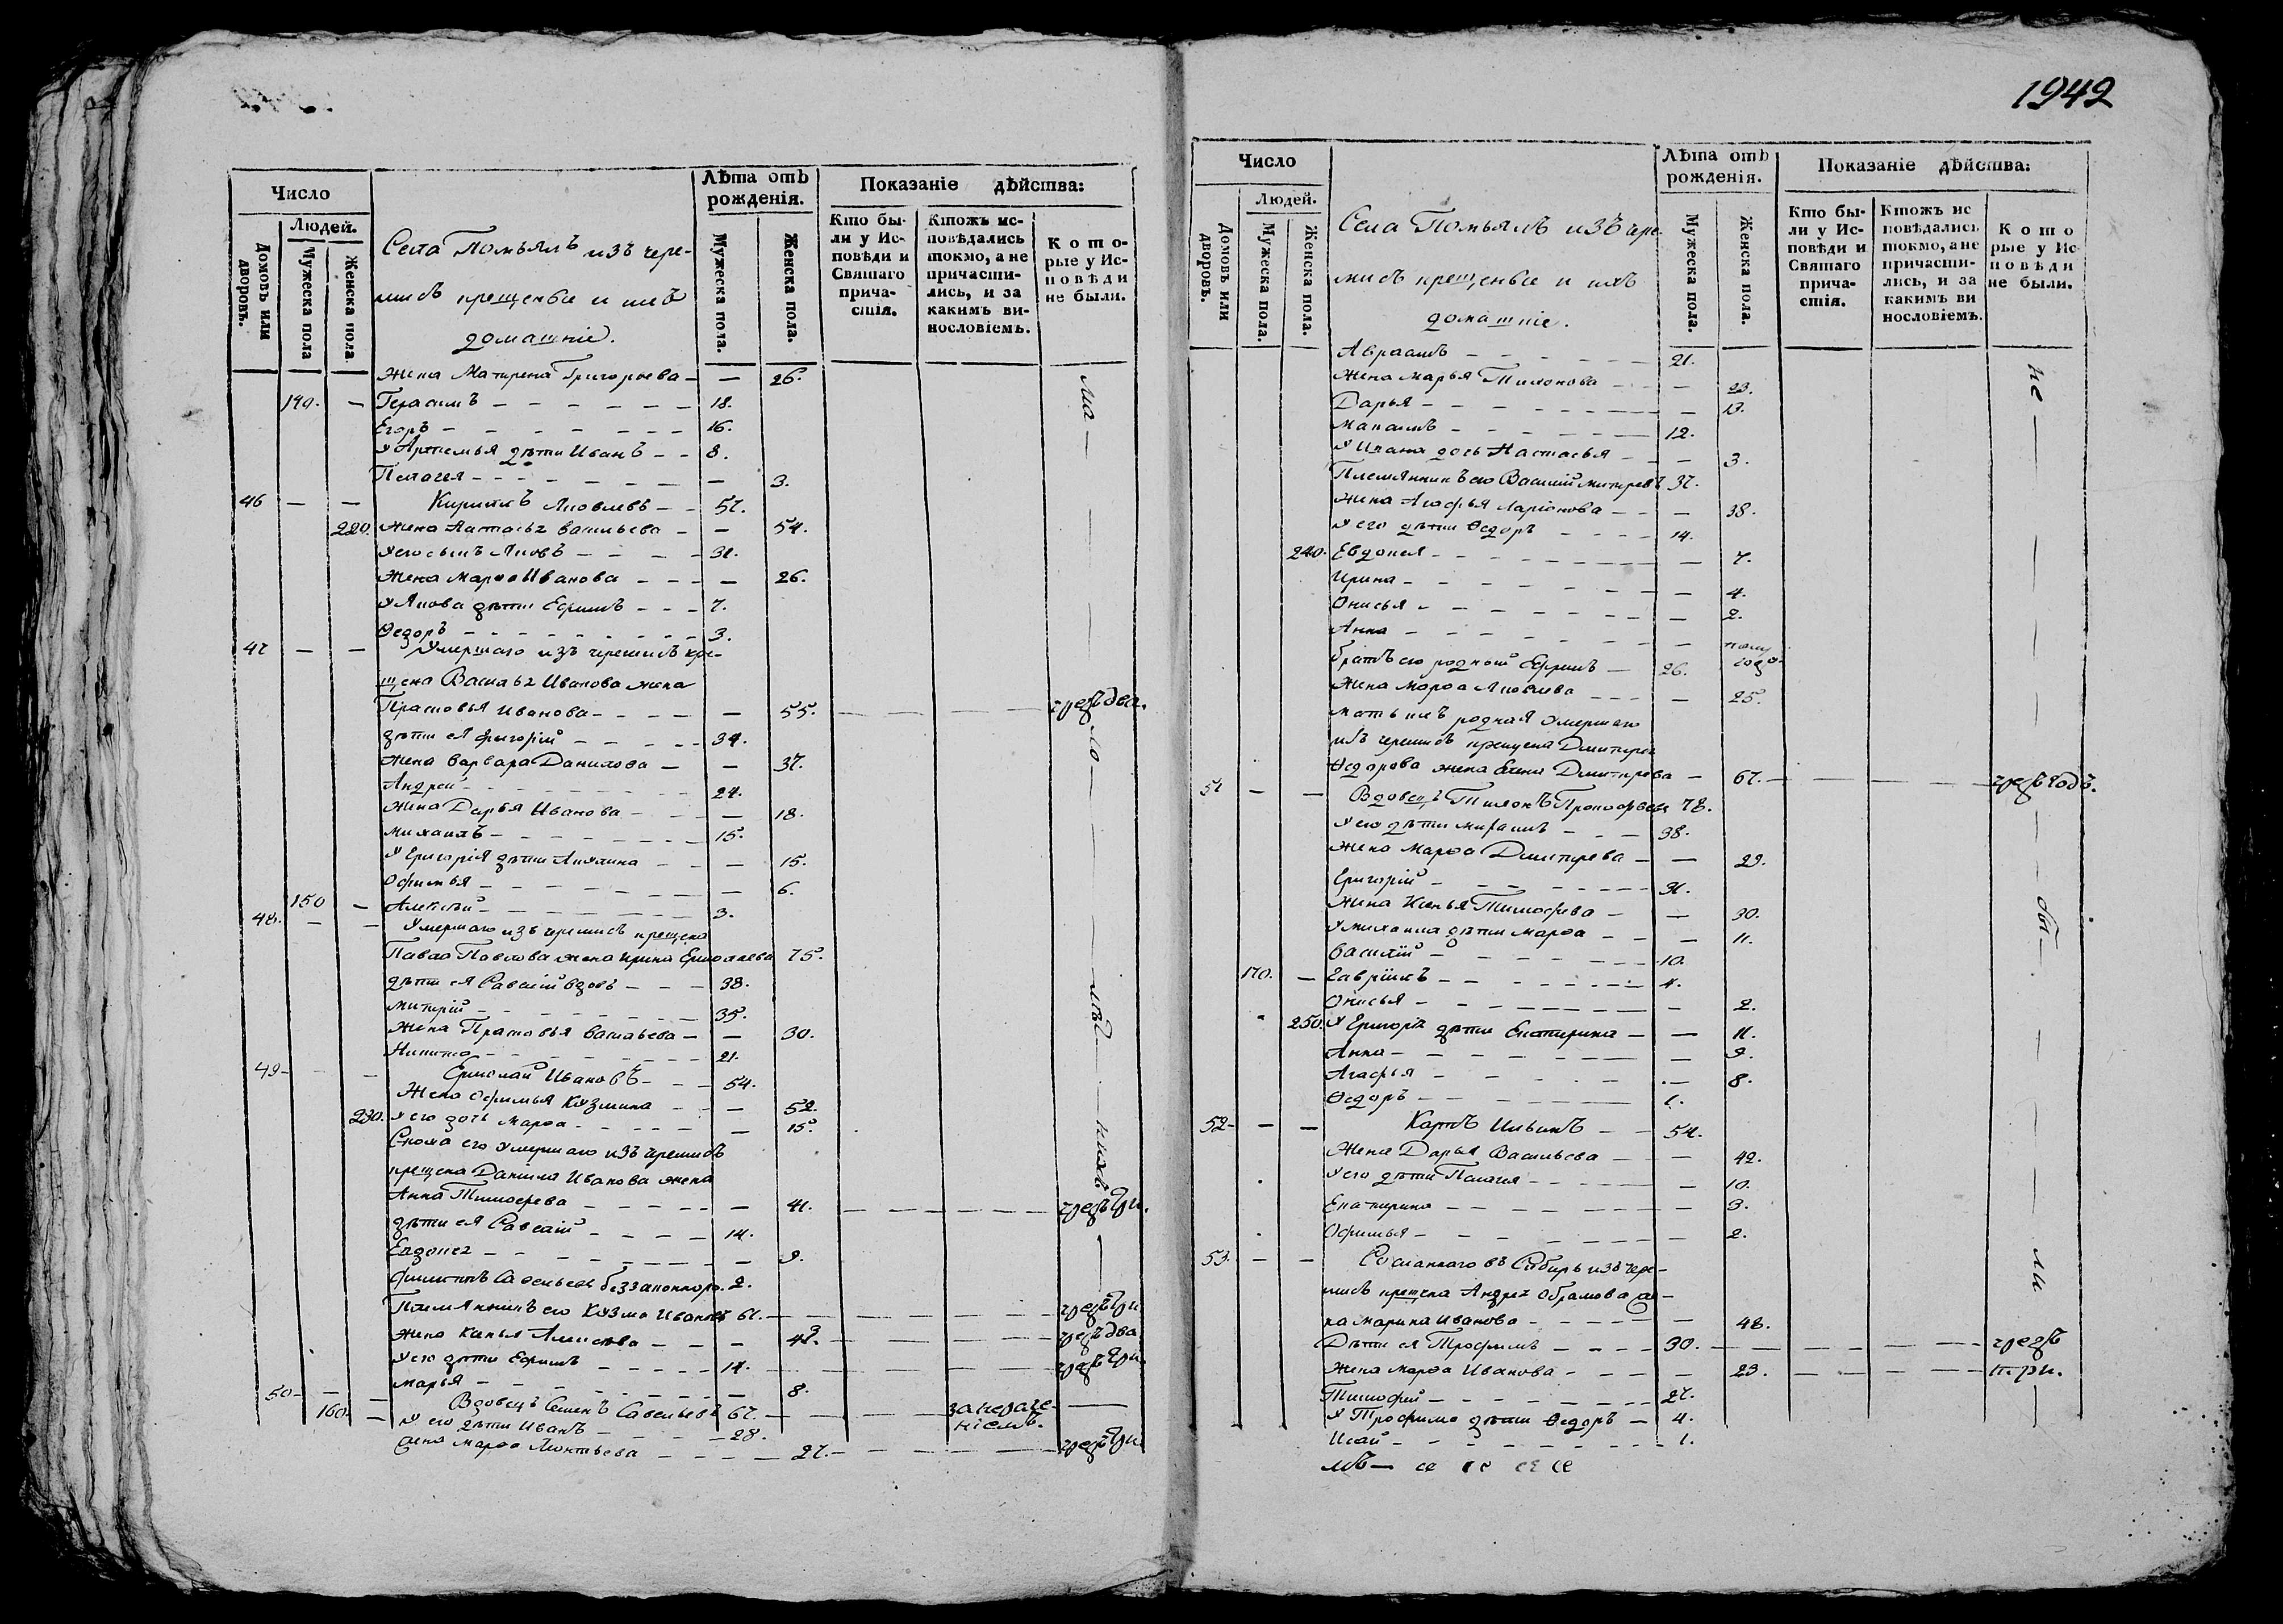 1942
Число
Людей.
Домовъ или дворовъ.
Мужеска пола
Женска пола.
Села Помьялъ изъ чере-
мисъ крещеные и ихъ
домашніе.
Лѣта отъ рожденія.
Мужеска пола.
Женска пола.
Показаніе дѣйства:
Кто бы-
ли у Ис-
повѣди и
Святаго
прича-
стія.
Ктожъ ис-
повѣдались
токмо, а не
причасти-
лись, и за
какимъ ви-
нословіемъ.
Кото-
рые у Ис-
повѣди
не были.
Жена Матрена Григорьева — — 26.
140. — Герасимъ — 18.
Егоръ — 16.
У Артемья дѣти Иванъ — 8.
Пелагея — — 3.
46 — — Кирилъ Яковлевъ — 57.
220. Жена Настасья Васильева — — 54.
У его сынъ Яковъ — 31.
Жена Марѳа Иванова — — 26.
У Якова дѣти Ефимъ — 7.
Ѳедоръ — 3.
47 — — Умершаго изъ черемисъ кре-
щена Василья Иванова жена
Прасковья Иванова — — 55. — — чрезъ два.
дѣти ея Григорій — 34.
Жена Варвара Данилова — — 37.
Андрей — 24.
Жена Дарья Иванова — — 18.
Михаилъ — 15.
У Григорія дѣти Акулина — — 15.
Офимья — — 6.
150 — Алексѣй — 3.
48. — — Умершаго изъ черемисъ крещена
Павла Павлова жена Ирина Ермолаева 75.
дѣти ея Савелій вдовъ — 38.
Митрій — 35.
Жена Прасковья Васильева — — 30.
Никита — 21.
49 — — Ермолай Ивановъ — 54.
Жена Офимья Кузмина — — 52.
230. У его дочь Марѳа — — 15.
Сноха его умершаго изъ черемисъ
крещена Данила Иванова жена
Анна Тимофеева — — 41. — — чрезъ три.
дѣти ея Савелій — 14.
Евдокея — — 9.
Филипъ Савельевъ беззаконноро. 2.
Племянникъ его Кузма Ивановъ 61. — — чрезъ три
Жена Ксенья Алексѣева — — 42. — — чрезъ два
У его дѣти Ефимъ — 14. — — чрезъ три
Марья — — 8.
50 — — Вдовецъ Семенъ Савельевъ 67. — за нераче-
ніемъ.
160. — У его дѣти Иванъ — 28.
Жена Марѳа Леонтьева — — 27. — — чрезъ три
ма — ло — лѣт — ством
Число
Людей.
Домовъ или дворовъ.
Мужеска пола.
Женска пола.
Села Помьялъ изъ чере-
мисъ крещеные и ихъ
домашніе.
Лѣта отъ рожденія.
Мужеска пола.
Женска пола.
Показаніе дѣйства:
Кто бы-
ли у Ис-
повѣди и
Святаго
прича-
стія.
Ктожъ ис
повѣдались
токмо, а не
причасти-
лись, и за
какимъ ви
нословіемъ.
Кото
рые у Ис
повѣди
не были.
Авраамъ — 21.
Жена Марья Тихонова — — 23.
Дарья — — 13.
Макаръ — 12.
У Ивана дочь Настасья — — 3.
Племянникъ его Василій Митревъ 37.
Жена Агафья Ларіонова — — 38.
У его дѣти Ѳедоръ — 14.
240. Евдокея — — 7.
Ирина — — 4.
Онисья — — 2.
Анна — — полу
года
братъ его родной Ефимъ — 26.
Жена Марѳа Яковлева — — 25.
Мать ихъ родная умершаго
изъ черемисъ крещена Дмитрея
Ѳедорова жена Елена Дмитрева — 67. — — чрезъ годъ.
51 — — Вдовецъ Тихонъ Прокофьевъ 78.
У его дѣти Михаилъ — 38.
Жена Марѳа Дмитрева — — 29.
Григорій — 31.
Жена Ксенья Тимофеева — — 30.
У Михаила дѣти Марѳа — — 11.
Василій — 10.
170. — Гавріилъ — 4.
Онисья — — 2.
250. У Григорья дѣти Екатерина — — 11.
Анна — — 9.
Агафья — — 8.
Ѳедоръ — 1.
52 — — Карпъ Ильинъ — 54.
Жена Дарья Васильева — — 42.
У его дѣти Пелагея — — 10.
Екатерина — — 3.
Офимья — — 2.
53. — — Сосланнаго въ Сибирь изъ чере-
мисъ крещена Андрея Обрамова же-
на Марина Иванова — — 48.
Дѣти ея Трофимъ — 30. — — чрезъ
Жена Марѳа Иванова — — 23. — — три.
Тимофей — 27.
У Трофима дѣти Ѳедоръ — 4.
Исай — 1.
не — бы — ли